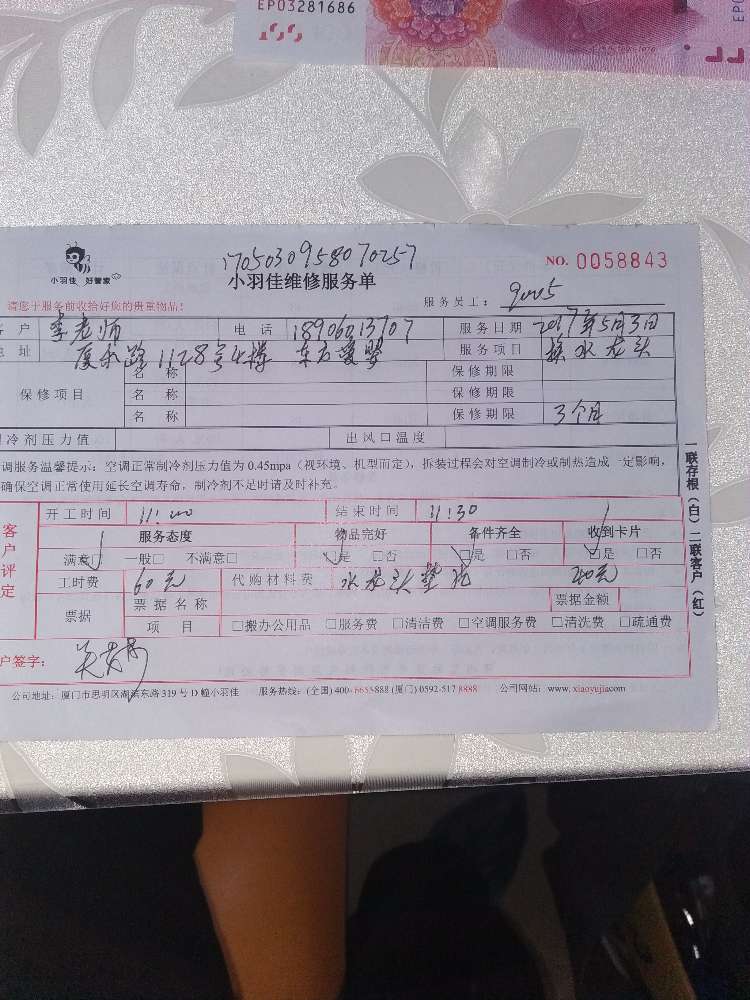 EP03281686
100
1705030958070257
小羽佳 好管家
小羽佳维修服务单
NO. 0058843
请您于服务前收拾好您的贵重物品!
服务员工: 9005
户 李老师 电话 18906013707 服务日期 2017年5月3日
地址 厦禾路1128号4楼 东方爱婴 服务项目 换水龙头
保修项目 名称 保修期限
名称 保修期限
名称 保修期限 3个月
冷剂压力值 出风口温度
调服务温馨提示:空调正常制冷剂压力值为 0.45mpa(视环境、机型而定),拆装过程会对空调制冷或制热造成一定影响,
确保空调正常使用延长空调寿命,制冷剂不足时请及时补充。
一联存根(白)二联客户(红)
客户评定
开工时间 11:00 结束时间 11:30
服务态度 物品完好 备件齐全 收到卡片
满意 一般□ 不满意□ 是 □否 □是 □否 □是 □否
工时费 60元 代购材料费 水龙头垫
票据 票据名称 票据金额
项目 □搬办公用品 □服务费 □清洁费 □空调服务费 □清洗费 □疏通费
户签字:
公司地址:厦门市思明区湖滨东路 319 号 D 幢小羽佳 服务热线:(全国) 400-6655888 (厦门) 0592-517 8888 公司网站:www.xiaoyujia.com